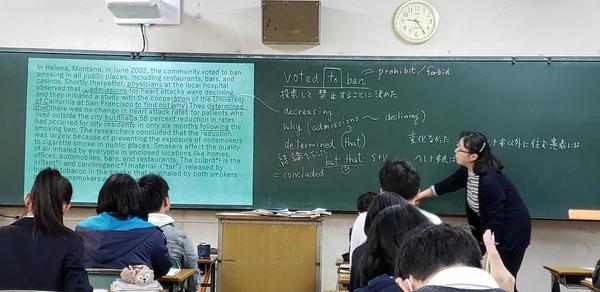 In Helena, Montana, in June 2002, the community voted to ban
smoking in all public places, including restaurants, bars, and
casinos. Shortly thereafter, physicians at the local hospital
observed that admissions for heart attacks were declining,
and they initiated a study with the cooperation of the University
of California at San Francisco to find out why. They determined
that there was no change in heart attack rates for patients who
lived outside the city but that a 58 percent reduction in rates
had occurred for city residents in only six months following the
smoking ban. The researchers concluded that the reduction
was largely because of preventing the exposure of nonsmokers
to cigarette smoke in public places. Smokers affect the quality
of air inhaled by everyone in enclosed locations like homes,
offices, automobiles, bars, and restaurants. The culprit is the
irritant and carcinogenic material ("tar") released by
tobacco in the smoke that is inhaled by both smokers
voted to ban = prohibit / forbid
投票して 禁止することに決めた
decreasing
why (admissions ~ declining)
determined (that) ①
but that ②
= concluded
変化なかった
市以外に住む患者には
ヘレナ市民